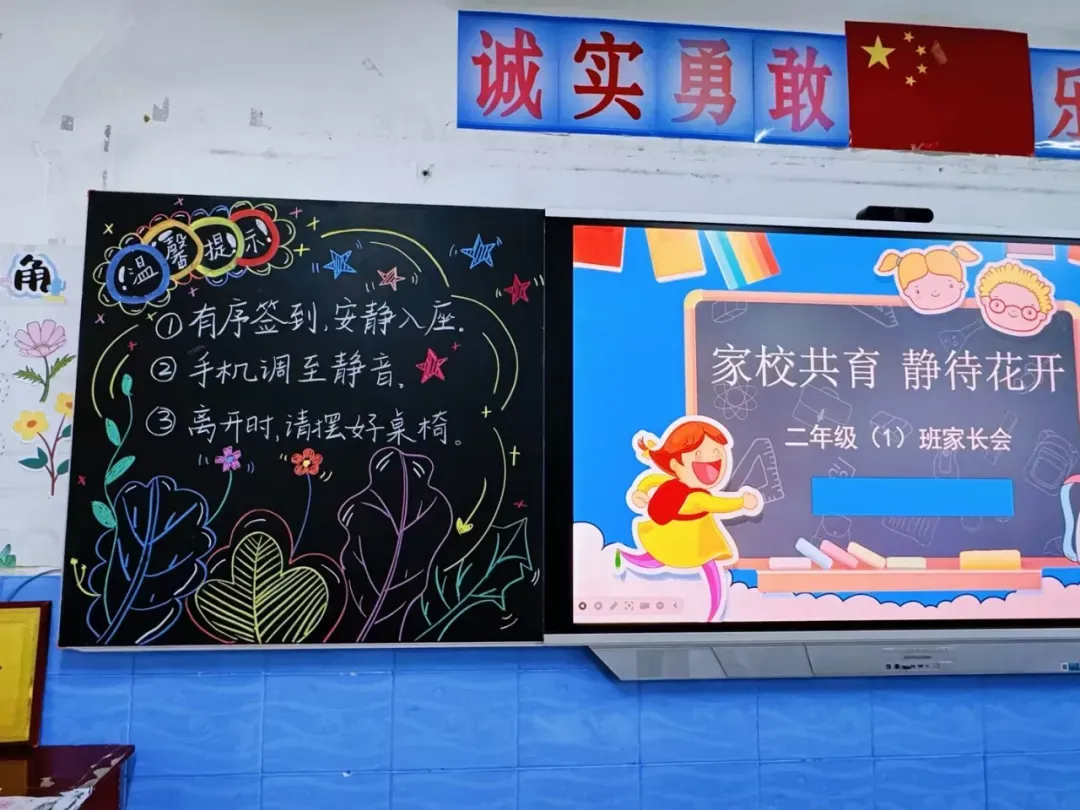 诚实勇敢
乐
角
温馨提示
①有序签到,安静入座.
②手机调至静音.
③离开时,请摆好桌椅。
家校共育 静待花开
二年级（1）班家长会